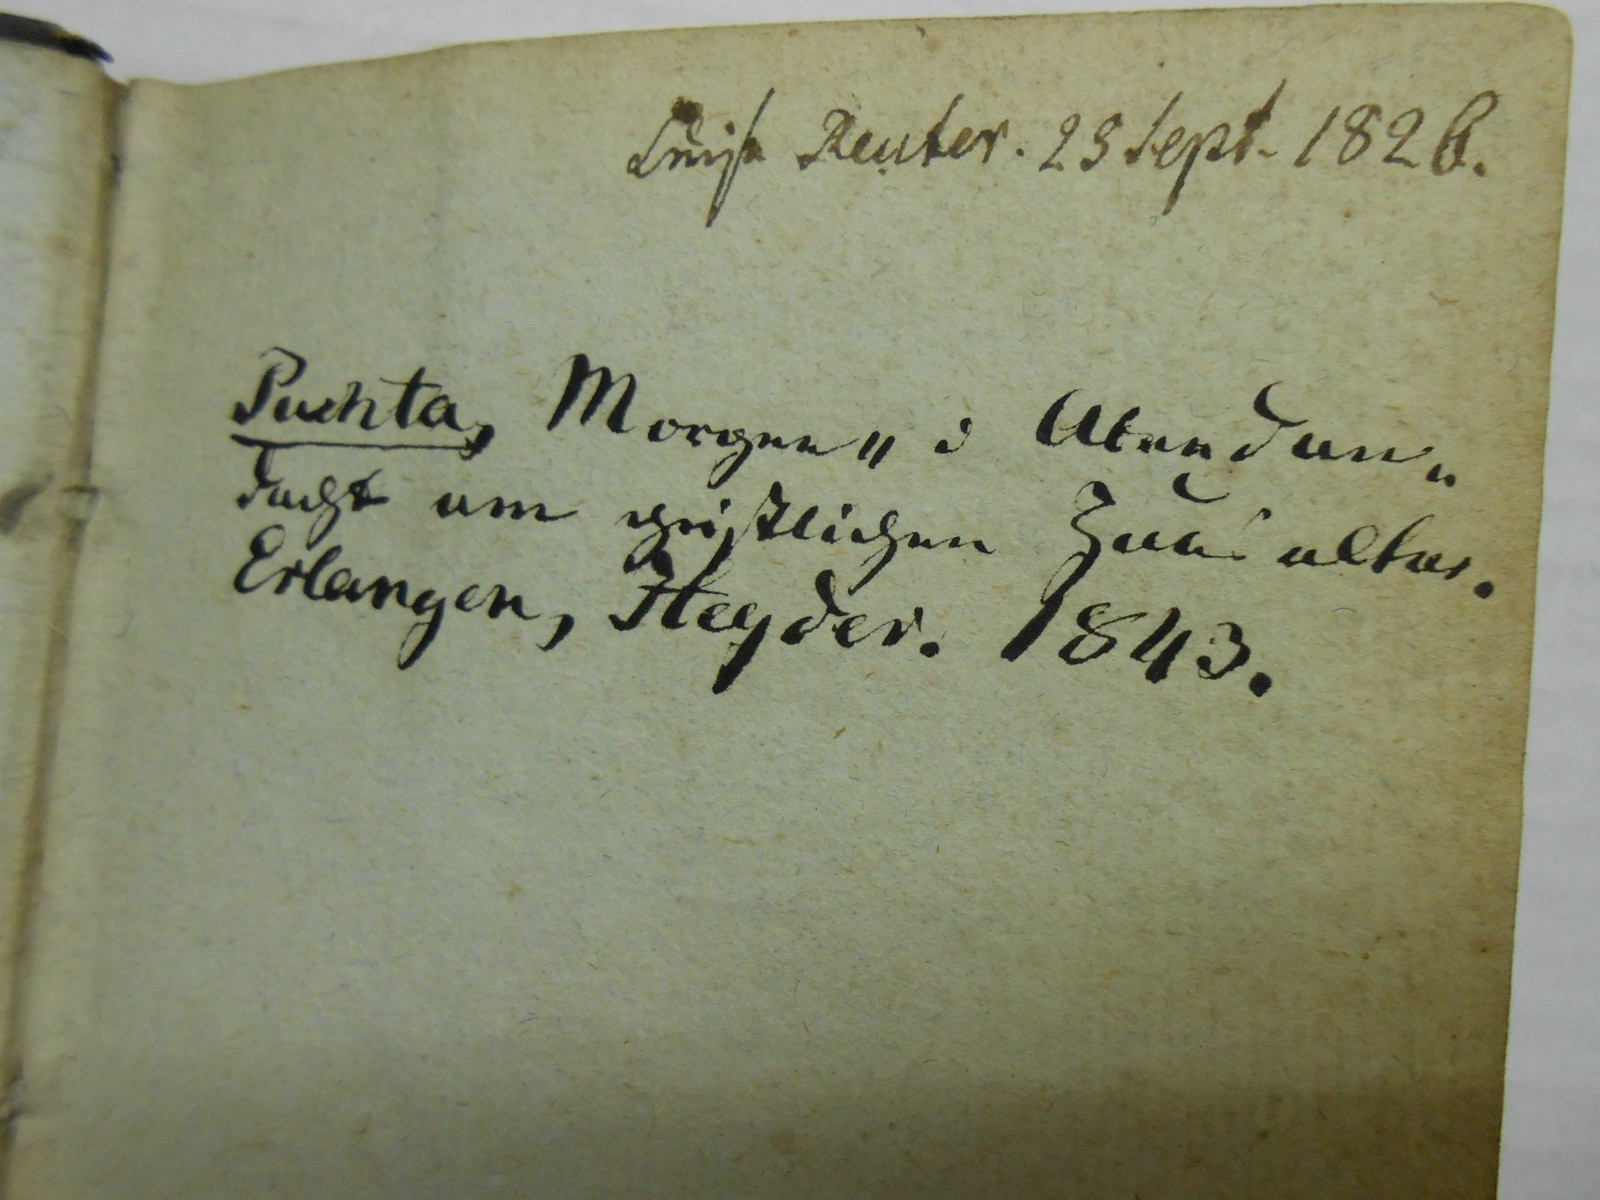 Luise Reuter. 23 Sept. 1826.
Puchta, Morgen= u Abendan=
dacht am christlichen Hausaltar.
Erlangen, Heyder. 1843.